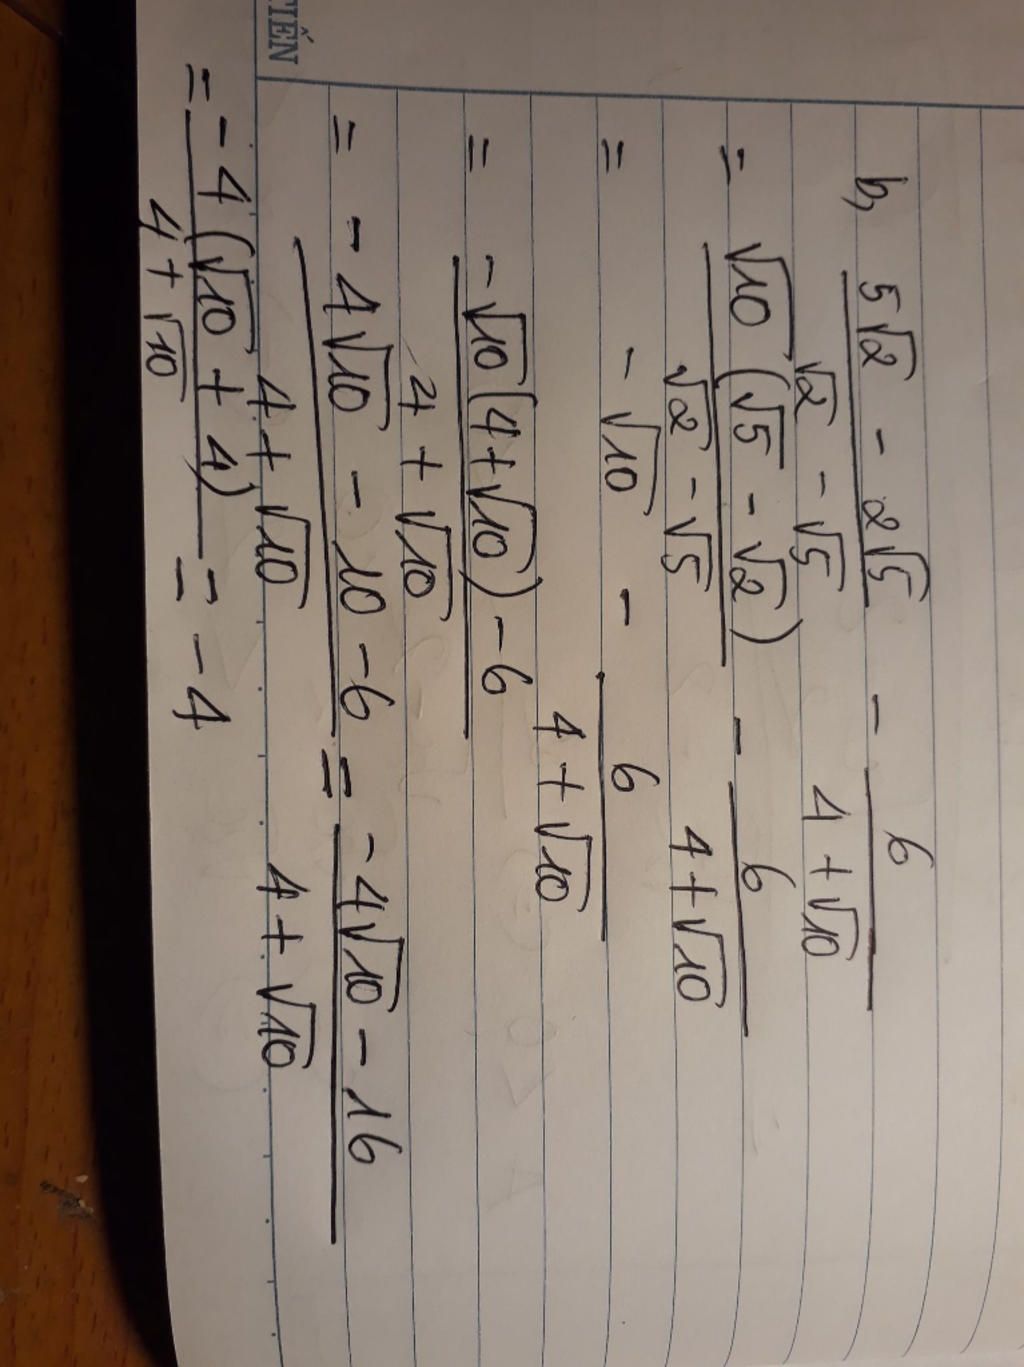 TIẾN
b, (5√2 - 2√5)/(√2 - √5) - 6/(4 + √10)
= √10 (√5 - √2)/(√2 - √5) - 6/(4 + √10)
= - √10 - 6/(4 + √10)
= (-√10 (4 + √10) - 6)/(4 + √10)
= (- 4√10 - 10 - 6)/(4 + √10) = (-4√10 - 16)/(4 + √10)
= -4 (√10 + 4)/(4 + √10) = -4